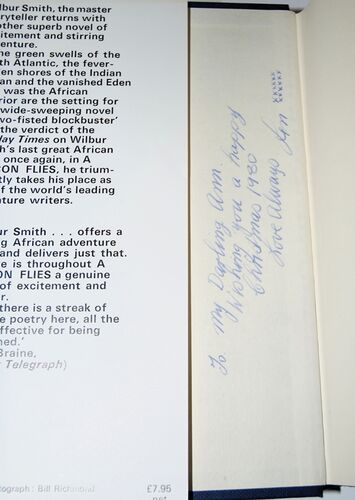 lbur Smith, the master
ryteller returns with
other superb novel of
itement and stirring
enture.
he green swells of the
th Atlantic, the fever-
en shores of the Indian
an and the vanished Eden
was the African
rior are the setting for
wide-sweeping novel
wo-fisted blockbuster'
the verdict of the
day Times on Wilbur
h's last great African
once again, in A
CON FLIES, he trium-
tly takes his place as
f the world's leading
nture writers.
ur Smith . . . offers a
ng African adventure
and delivers just that.
e is throughout A
ON FLIES a genuine
of excitement and
r.
there is a streak of
e poetry here, all the
ffective for being
ned.'
Braine,
Telegraph)
tograph : Bill Richmond
£7.95
net
To My Darling Ann.
Wishing you a happy
Christmas 1980
Love Always